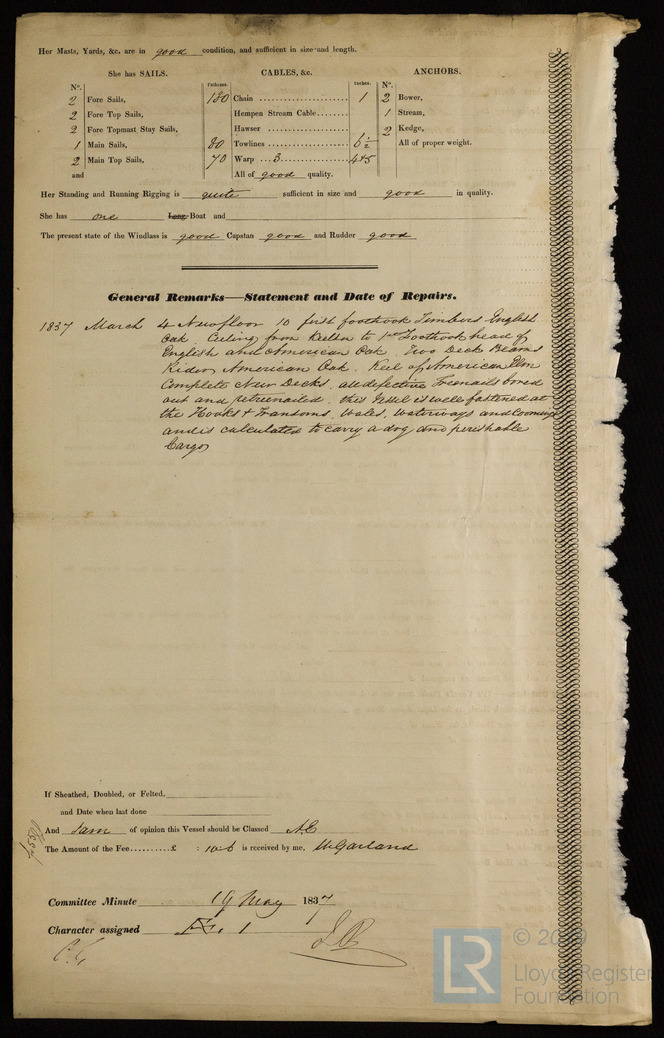 Her Masts, Yards, &c. are in good condition, and sufficient in size and length.
She has SAILS. CABLES, &c. ANCHORS.
N°. Fathoms. Inches. N°.
2 Fore Sails, 180 Chain 1 2 Bower,
2 Fore Top Sails, Hempen Stream Cable 1 Stream,
2 Fore Topmast Stay Sails, Hawser 2 Kedge,
1 Main Sails, 80 Towlines 6½ All of proper weight.
2 Main Top Sails, 70 Warp 3 4+5
and All of good quality.
Her Standing and Running Rigging is quite sufficient in size and good in quality.
She has one Long Boat and
The present state of the Windlass is good Capstan good and Rudder good
General Remarks—Statement and Date of Repairs.
1837 March 4 New floor 10 first foothook Timbers English
Oak. Ceiling from Keelson to 1st Foothook head of
English and American Oak. Two Deck Beams
Rider American Oak. Keel of American Elm
Complete New Decks. all defective Treenails bored
out and retreenailed. this Vessel is well fastened at
the Hooks + Transoms, Wales, Waterways and Coamings
and is calculated to carry a dry and perishable
Cargo
If Sheathed, Doubled, or Felted.
and Date when last done
And I am of opinion this Vessel should be Classed Æ
The Amount of the Fee..........£ : 10:6 is received by me, W Garland
Committee Minute 19 May 1837
Character assigned 1
LR © 20
Lloyd's Register
Foundation